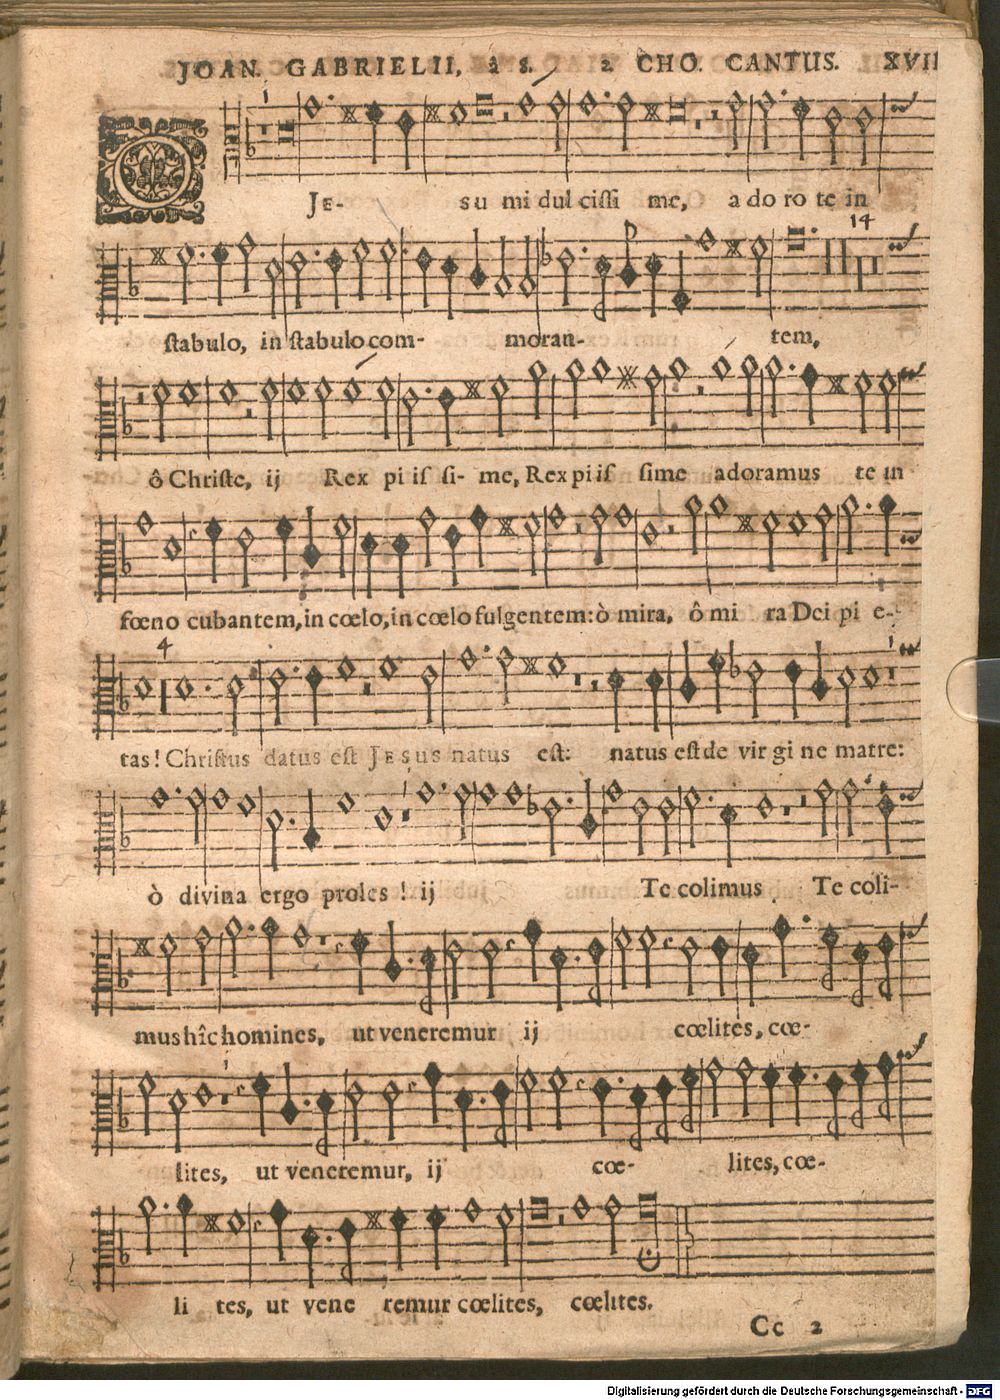 JOAN. GABRIELII, â 8. 2 CHO. CANTUS. XVII
1
O JE- su mi dul cissi me, a do ro te in
14
stabulo, in stabulo com- moran- tem,
ô Christe, ij Rex pi is si- me, Rex pi is sime adoramus te in
fœno cubantem, in cœlo, in cœlo fulgentem: ò mira, ô mi ra Dei pi e-
4
tas! Christus datus est JESUS natus est: natus est de vir gi ne matre:
ò divina ergo proles ! ij Te colimus Te coli-
mus hîc homines, ut veneremur ij cœlites, cœ-
lites, ut veneremur, ij cœ- lites, cœ-
li tes, ut vene remur cœlites, cœlites.
Cc 2
Digitalisierung gefördert durch die Deutsche Forschungsgemeinschaft - DFG